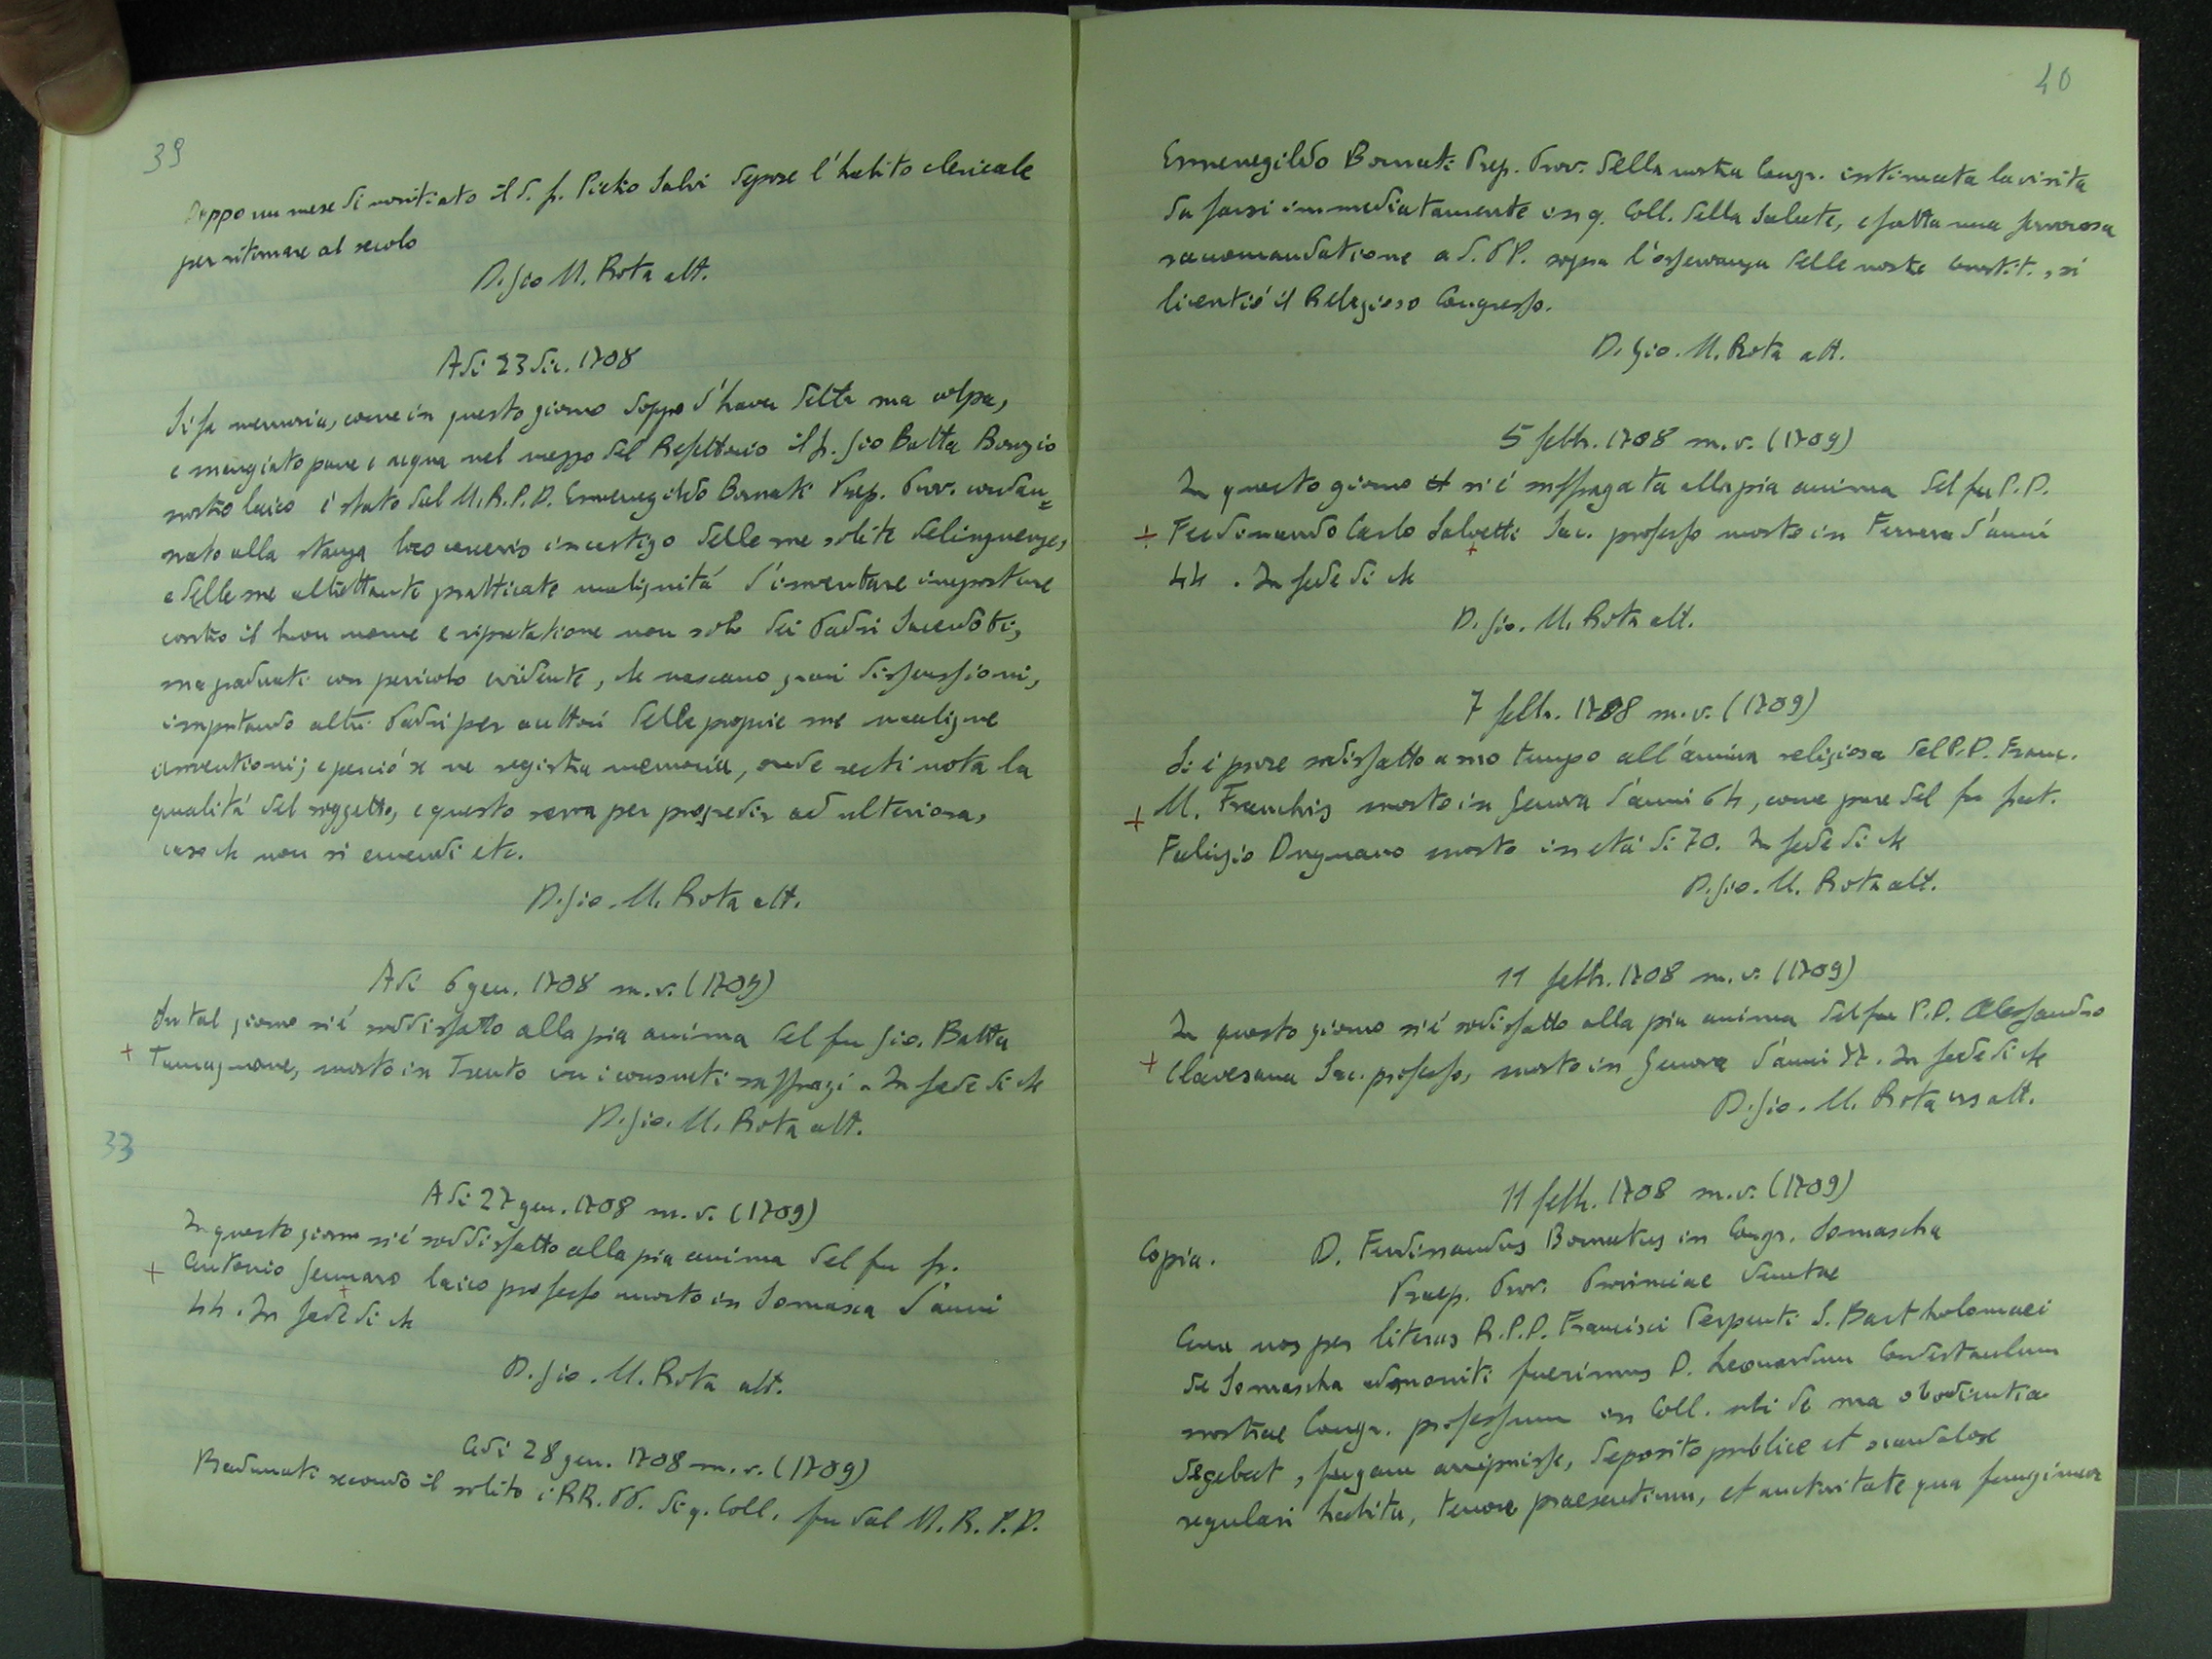 39
Doppo un mese di novitiato il d. fr. Pietro Salvi depose l'habito clericale
per ritornare al secolo
D. Gio M. Rota att.
Adi 23 dic. 1708
Si fa memoria, come in questo giorno doppo d'haver detta sua colpa,
e mangiato pane e acqua nel mezzo del Refettorio il fr. Gio Batta Bonzio
nostro laico è stato dal M.R.P.D. Ermenegildo Bornati Prep. Prov. condan=
nato alla stanza loco carceris in castigo delle sue solite delinquenze,
e delle sue altrettante pratticate malignità d'inventare imposture
contro il buon nome e riputatione non solo dei Padri Sacerdoti,
ma graduati con pericolo evidente, che nascano gravi dissensioni,
imputando altri Padri per auttori delle proprie sue maligne
inventioni; e perciò se ne registra memoria, onde resti nota la
qualità del soggetto, e questo serva per progredir ad ulteriora,
caso che non si emendi etc.
D. Gio. M. Rota att.
Adi 6 gen. 1708 m.v. (1709)
In tal giorno si é soddisfatto alla pia anima del fu Gio. Batta
+ Tamagnone, morto in Trento con i consueti suffragi. In fede di che
D. Gio. M. Rota att.
33
Adi 27 gen. 1708 m.v. (1709)
In questo giorno si é soddisfatto alla pia anima del fu fr.
+ Antonio Gennaro laico professo morto in Somasca d'anni
44. In fede di che
D. Gio. M. Rota att.
Adi 28 gen. 1708 m.v. (1709)
Radunati secondo il solito i RR. PP. di q. Coll. fu dal M.R.P.D.
40
Ermenegildo Bornati Prep. Prov. della nostra Congr. intimata la visita
da farsi immediatamente in q. Coll. della Salute, e fatta una fervorosa
raccomandatione a d. PP. sopra l'osservanza delle nostre Constit., si
licentiò il Religioso Congresso.
D. Gio. M. Rota att.
5 febb. 1708 m.v. (1709)
In questo giorno si é suffragata alla pia anima del fu P.D.
+ Ferdinando Carlo Salvetti Sac. professo morto in Ferrara d'anni
44. In fede di che
D. Gio. M. Rota att.
7 febb. 1708 m.v. (1709)
Si é pure sodisfatto a suo tempo all'anima religiosa del P.D. Franc.
+ M. Franchis morto in Genova d'anni 64, come pure del fu frat.
Fabrizio Dugnano morto in età di 70. In fede di che
D. Gio. M. Rota att.
11 febb. 1708 m.v. (1709)
In questo giorno si é sodisfatto alla pia anima del fu P.D. Alessandro
+ Clavesana Sac. professo, morto in Genova d'anni 77. In fede di che
D. Gio. M. Rota att.
11 febb. 1708 m.v. (1709)
Copia. D. Ferdinandus Bornatus in Congr. Somascha
Praep. Prov. Provinciae Venetae
Cum nos per literas R.P.D. Francisci Serpenti S. Bartholomaei
de Somascha admoniti fuerimus D. Leonardum
nostrae Congr. professum in Coll. ubi de sua obedientia
degebat, fugam arripuisse, deposito publice et scandalose
regulari habitu, tenore praesentium, et auctoritate qua fungimur